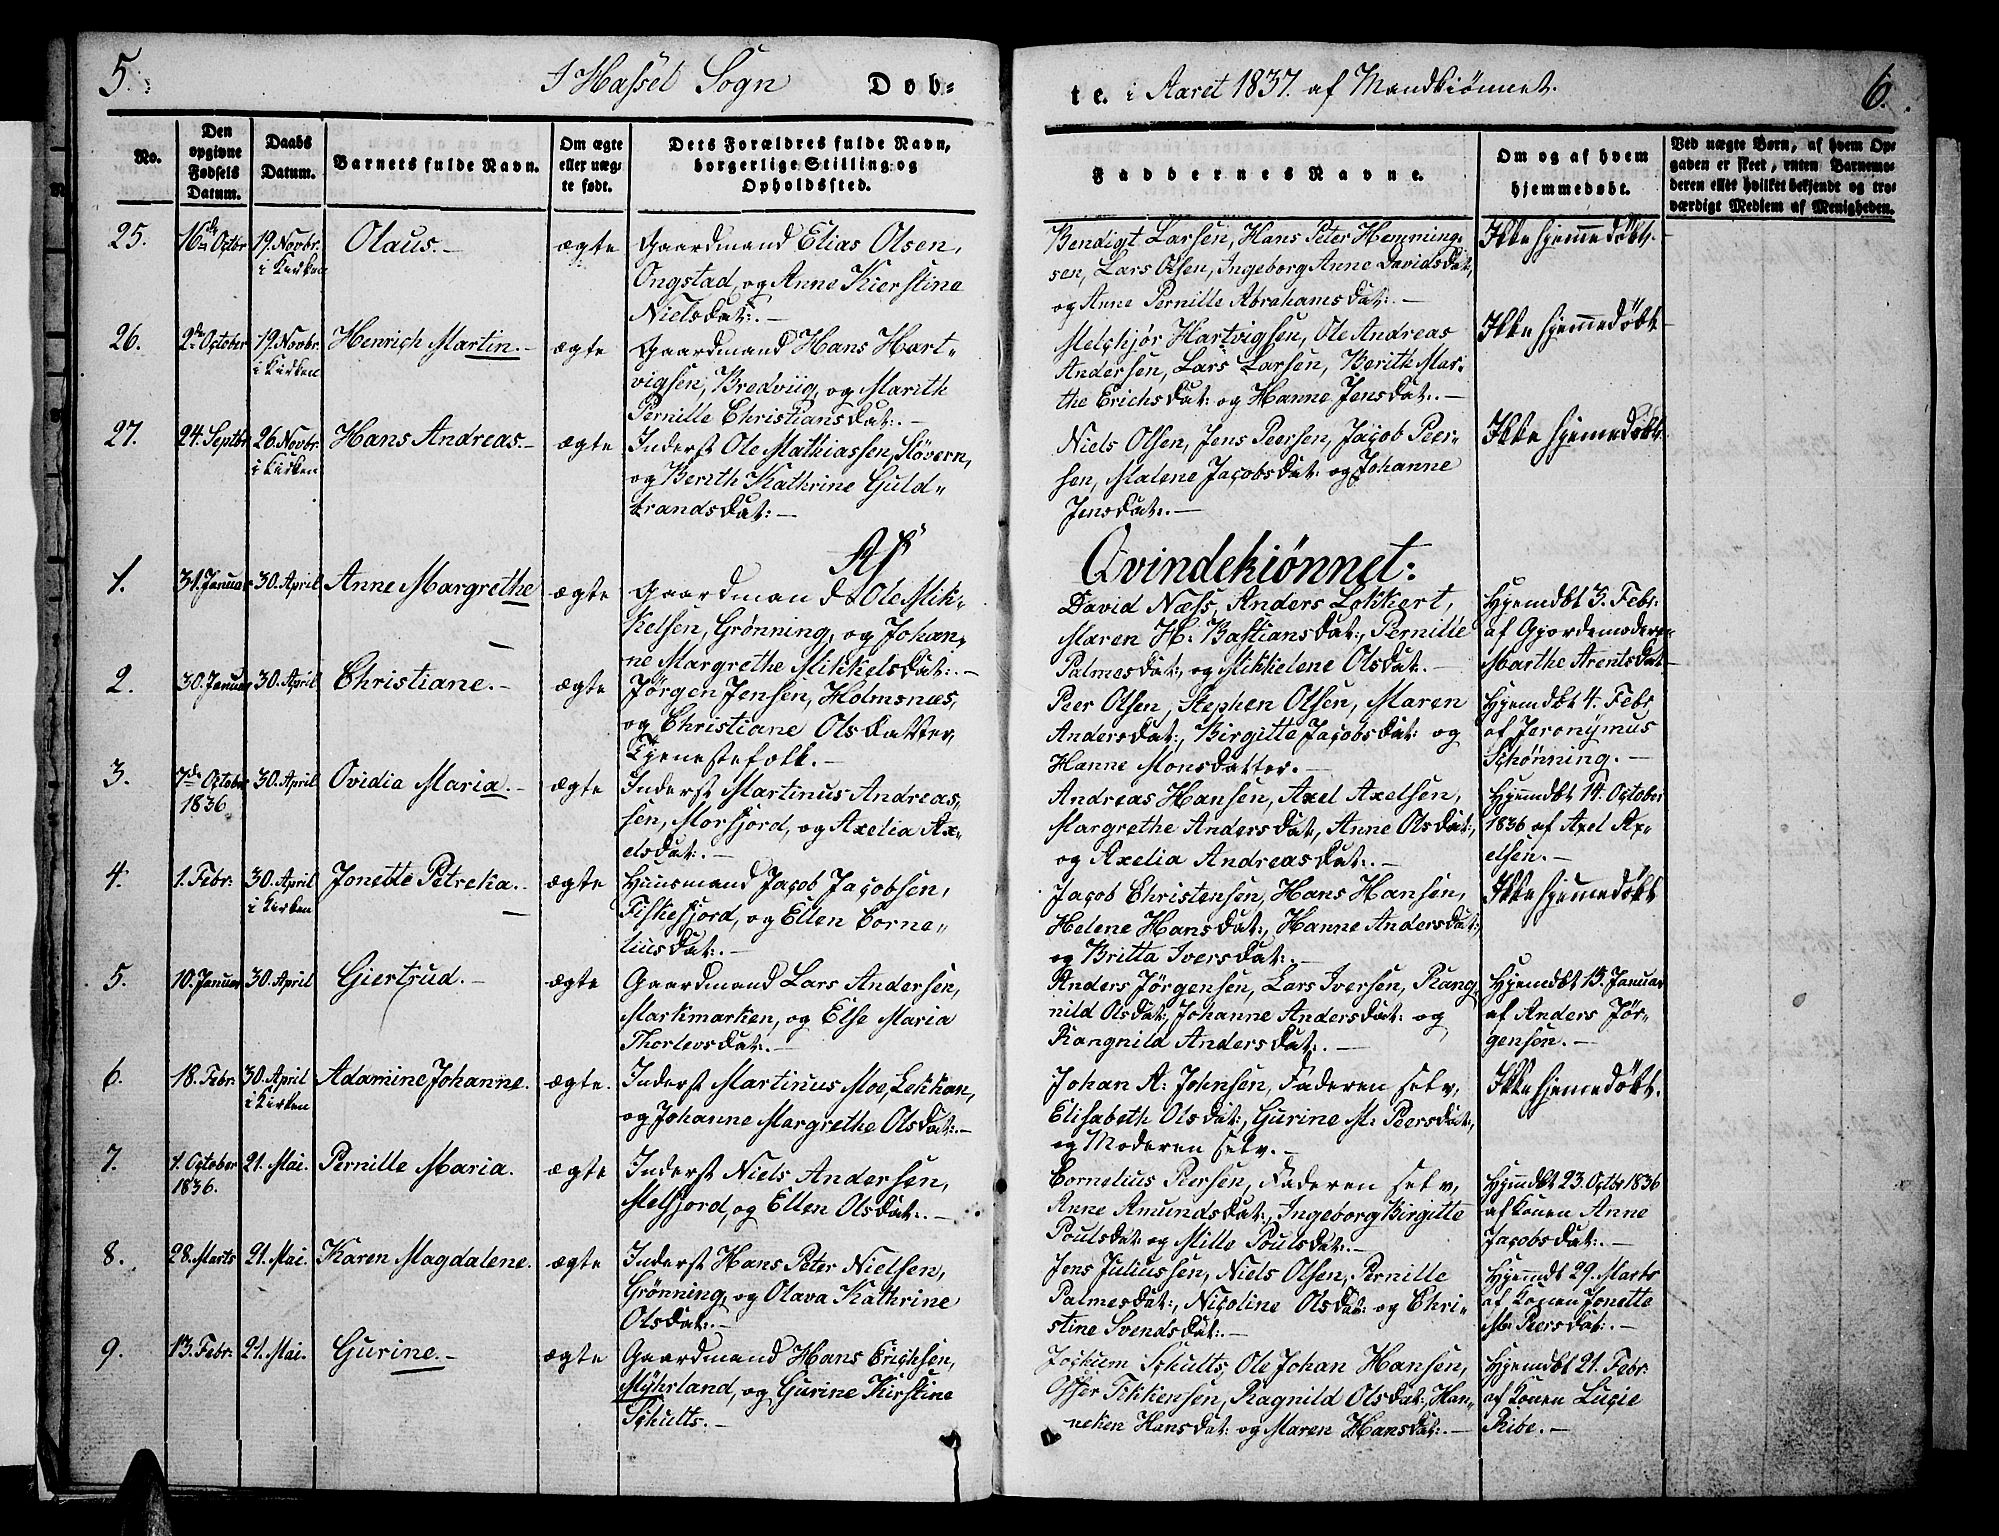 5.
I Hassel Sogn
Dob-
te. i Aaret 1837. af Mandkiønnet.
6.
No.
Den opgivne Fødsels Datum.
Daabs Datum.
Barnets fulde Navn.
Om ægte eller uægte født.
Dets Forældres fulde Navn, borgerlige Stilling og Opholdssted.
Faddernes Navne.
Om og af hvem hjemmedøbt.
Ved uægte Børn, af hvem Opgaven er skeet, enten Barnemoderen eller hvilket bekjendt og troværdigt Medlem af Menigheden.
25.
16de Octbr
19. Novbr.
i Kirken
Olaus.
ægte
Gaardmand Elias Olsen,
Ongstad, og Anne Kierstine
Nielsdat:
Bendigt Larsen, Hans Peter Hemming-
sen, Lars Olsen, Ingeborg Anne Davidsdat,
og Anne Pernille Abrahamsdat:
Ikke hjemmedøbt.
26.
2de October
19. Novbr.
i Kirken
Henrich Martin.
ægte
Gaardmand Hans Hart-
vigsen, Bredviig, og Marith
Pernille Christiansdat:
Melchjør Hartvigsen, Ole Andreas
Andersen, Lars Larsen, Berith Mar-
the Erichsdat: og Hanne Jensdat:
Ikke hjemmedøbt
27.
24. Septbr
26. Novbr.
i Kirken
Hans Andreas.
ægte
Inderst Ole Mathiassen, Støvern,
og Berith Kathrine Guld-
brandsdat:
Niels Olsen, Jens Peersen, Jacob Peer-
sen, Malene Jacobsdat: og Johanne
Jensdat:
Ikke hjemmedøbt
Af
Qvindekiønnet:
1.
31. Januar
30. April
Anne Margrethe
ægte
Gaardmand Ole Mik-
kelsen, Grønning, og Johan-
ne Margrethe Mikkelsdat:
David Næss, Anders Lekkert,
Maren H: Bastiansdat:, Pernille
Palmesdat:, og Mikkelene Olsdat.
Hjemdbt 3. Febr:
af Gjordemoderen
Marthe Arentsdat
2.
30. Januar
30. April
Christiane.
ægte
Jørgen Jensen, Holmsnæs,
og Christiane Olsdatter,
Tjenestefolk.
Peer Olsen, Stephen Olsen, Maren
Andersdat:, Birgitte Jacobsdat: og
Hanne Monsdatter.
Hjemdbt 4. Febr
af Jeronymus
Schønning.
3.
7de October
1836.
30. April
Ovidia Maria.
ægte
Inderst Martinus Andreas-
sen, Morfjord, og Axelia Ax-
elsdat:
Andreas Hansen, Axel Axelsen,
Margrethe Andersdat, Anne Olsdat:,
og Axelia Andreasdat:
Hjemdbt 14. October
1836 af Axel Ax-
elsen.
4.
1. Febr:
30. April
i Kirken
Jonette Petreka.
ægte
Huusmand Jacob Jacobsen,
Fiskefjord, og Ellen Corne-
liusdat:
Jacob Christensen, Hans Hansen,
Helene Hansdat:, Hanne Andersdat:,
og Britta Iversdat:
Ikke hjemmedøbt
5.
10. Januar
30. April
Giertrud.
ægte
Gaardmand Lars Andersen,
Markmarken, og Else Maria
Thorlevsdat:
Anders Jørgensen, Lars Iversen, Rang-
nild Olsdat:, Johanne Andersdat: og
Rangnild Andersdat:
Hjemdbt 15. Januar
af Anders Jør-
gensen.
6.
18. Febr:
30. April
i Kirken
Adamine Johanne.
ægte.
Inderst Martinus Moe, Lekkan,
og Johanne Margrethe Olsdat:
Johan A: Johnsen, Faderen selv,
Elisabeth Olsdat:, Gurine M: Peersdat:,
og Moderen selv.
Ikke hjemmedøbt.
7.
1. October
1836.
21. Mai.
Pernille Maria.
ægte
Inderst Niels Andersen,
Melfjord, og Ellen Olsdat:
Cornelius Peersen, Faderen selv,
Anne Amundsdat:, Ingeborg Birgitte
Poulsdat: og Mille Poulsdat:
Hjemdbt 23. Octbr 1836
af Konen Anne
Jacobsdat:
8.
28. Marts
21. Mai.
Karen Magdalene.
ægte
Inderst Hans Peter Nielsen,
Grønning, og Olava Kathrine
Olsdat:
Jens Juliussen, Niels Olsen, Pernille
Palmesdat:, Nicoline Olsdat: og Chri-
stine Svendsdat:
Hjemdt 29. Marts
af Konen Jonette
M: Peersdat:
9.
13. Febr:
21. Mai.
Gurine.
ægte
Gaardmand Hans Erichsen,
Myhrland, og Gurine Kirstine
Schults.
Jochum Schults, Ole Johan Hansen,
Offer Tikkensen, Ragnild Olsdat:, Han-
neken Hansdat: og Maren Hansdat:
Hjemdbt 21. Febr:
af Konen Lucie
Ribe.